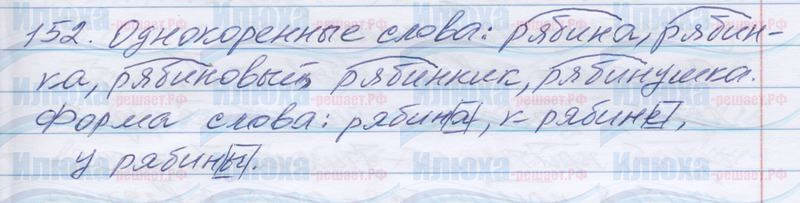 152. Однокоренные слова: рябина, рябин-
ка, рябиновый, рябинник, рябинушка.
Форма слова: рябина, к рябине,
у рябины.